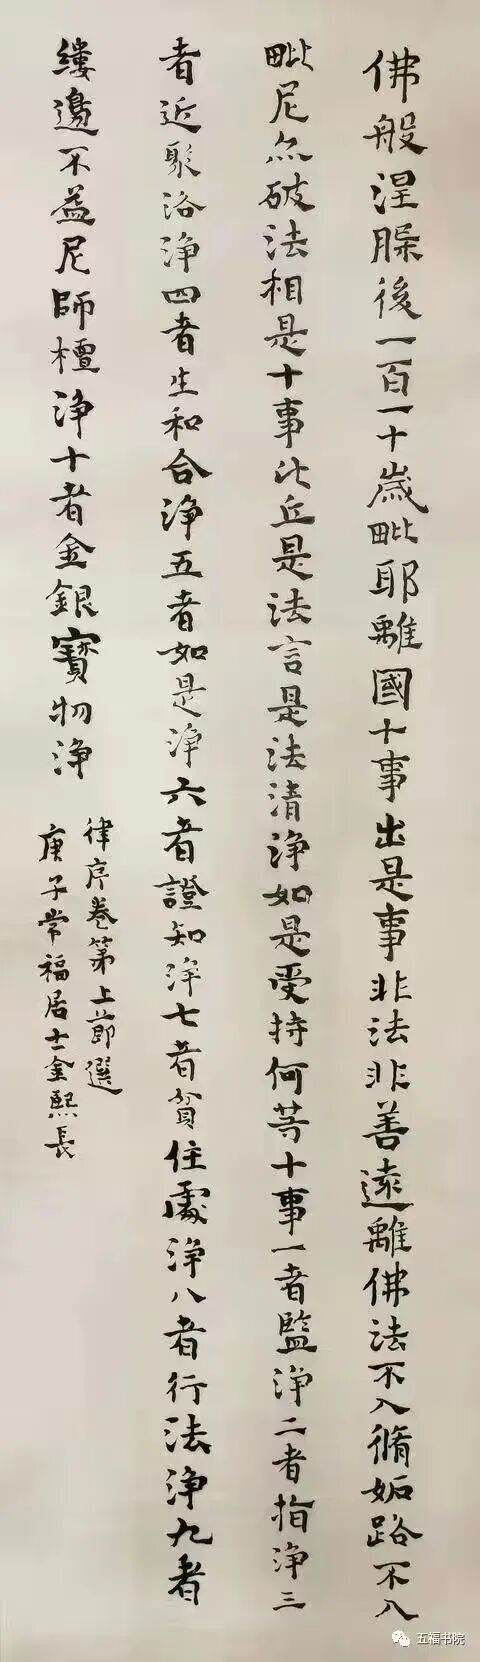 佛般涅槃後一百一十歲毗耶離國十事出是事非法非善遠離佛法不入脩妬路不入
毗尼亦破法相是十事比丘是法言是法清浄如是受持何等十事一者監浄二者指浄三
者近聚洛浄四者生和合浄五者如是浄六者證知浄七者貧住處浄八者行法浄九者
縷邊不益尼師檀浄十者金銀寶物浄
律序卷第上節選
庚子常福居士金熙長
五福书院